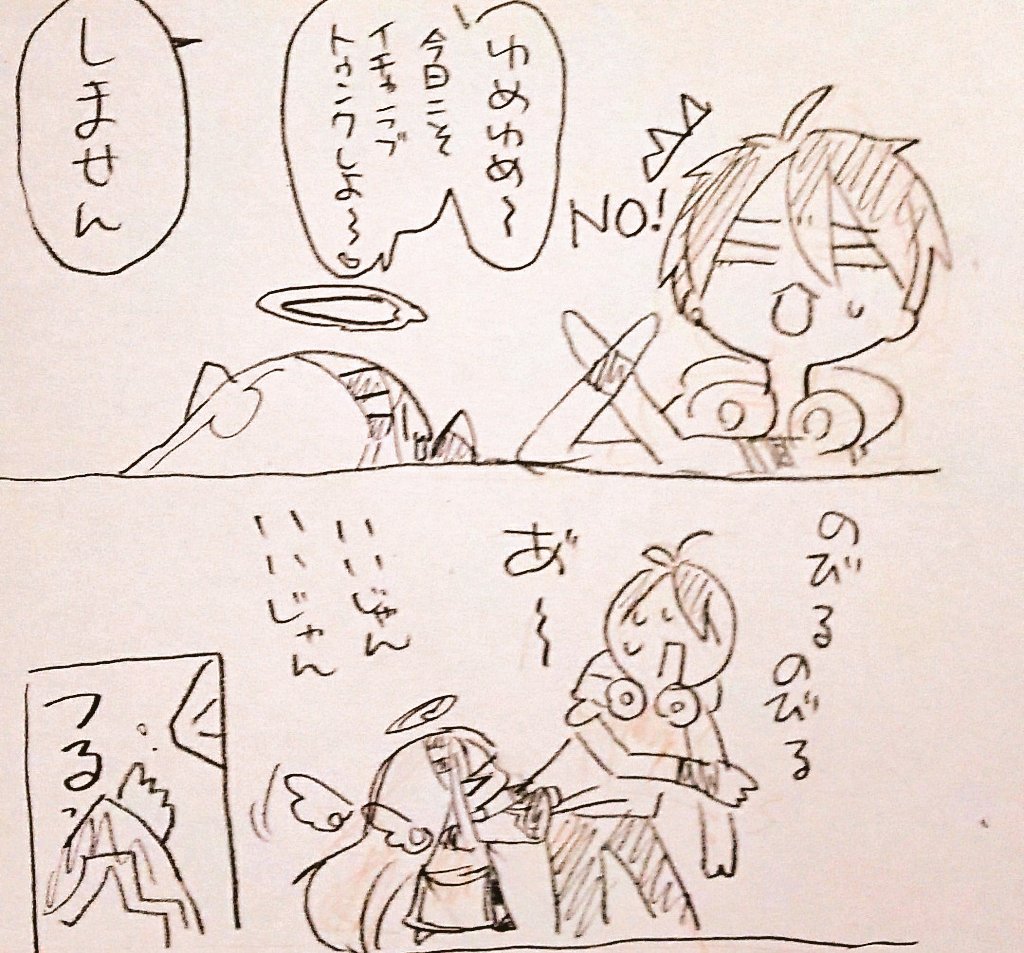 ゆめゆめ～
今日こそ
イチャラブ
トゥンクしよ～♡
NO!
しません
のびる
のびる
あ゛～
いいじゃん
いいじゃん
つる